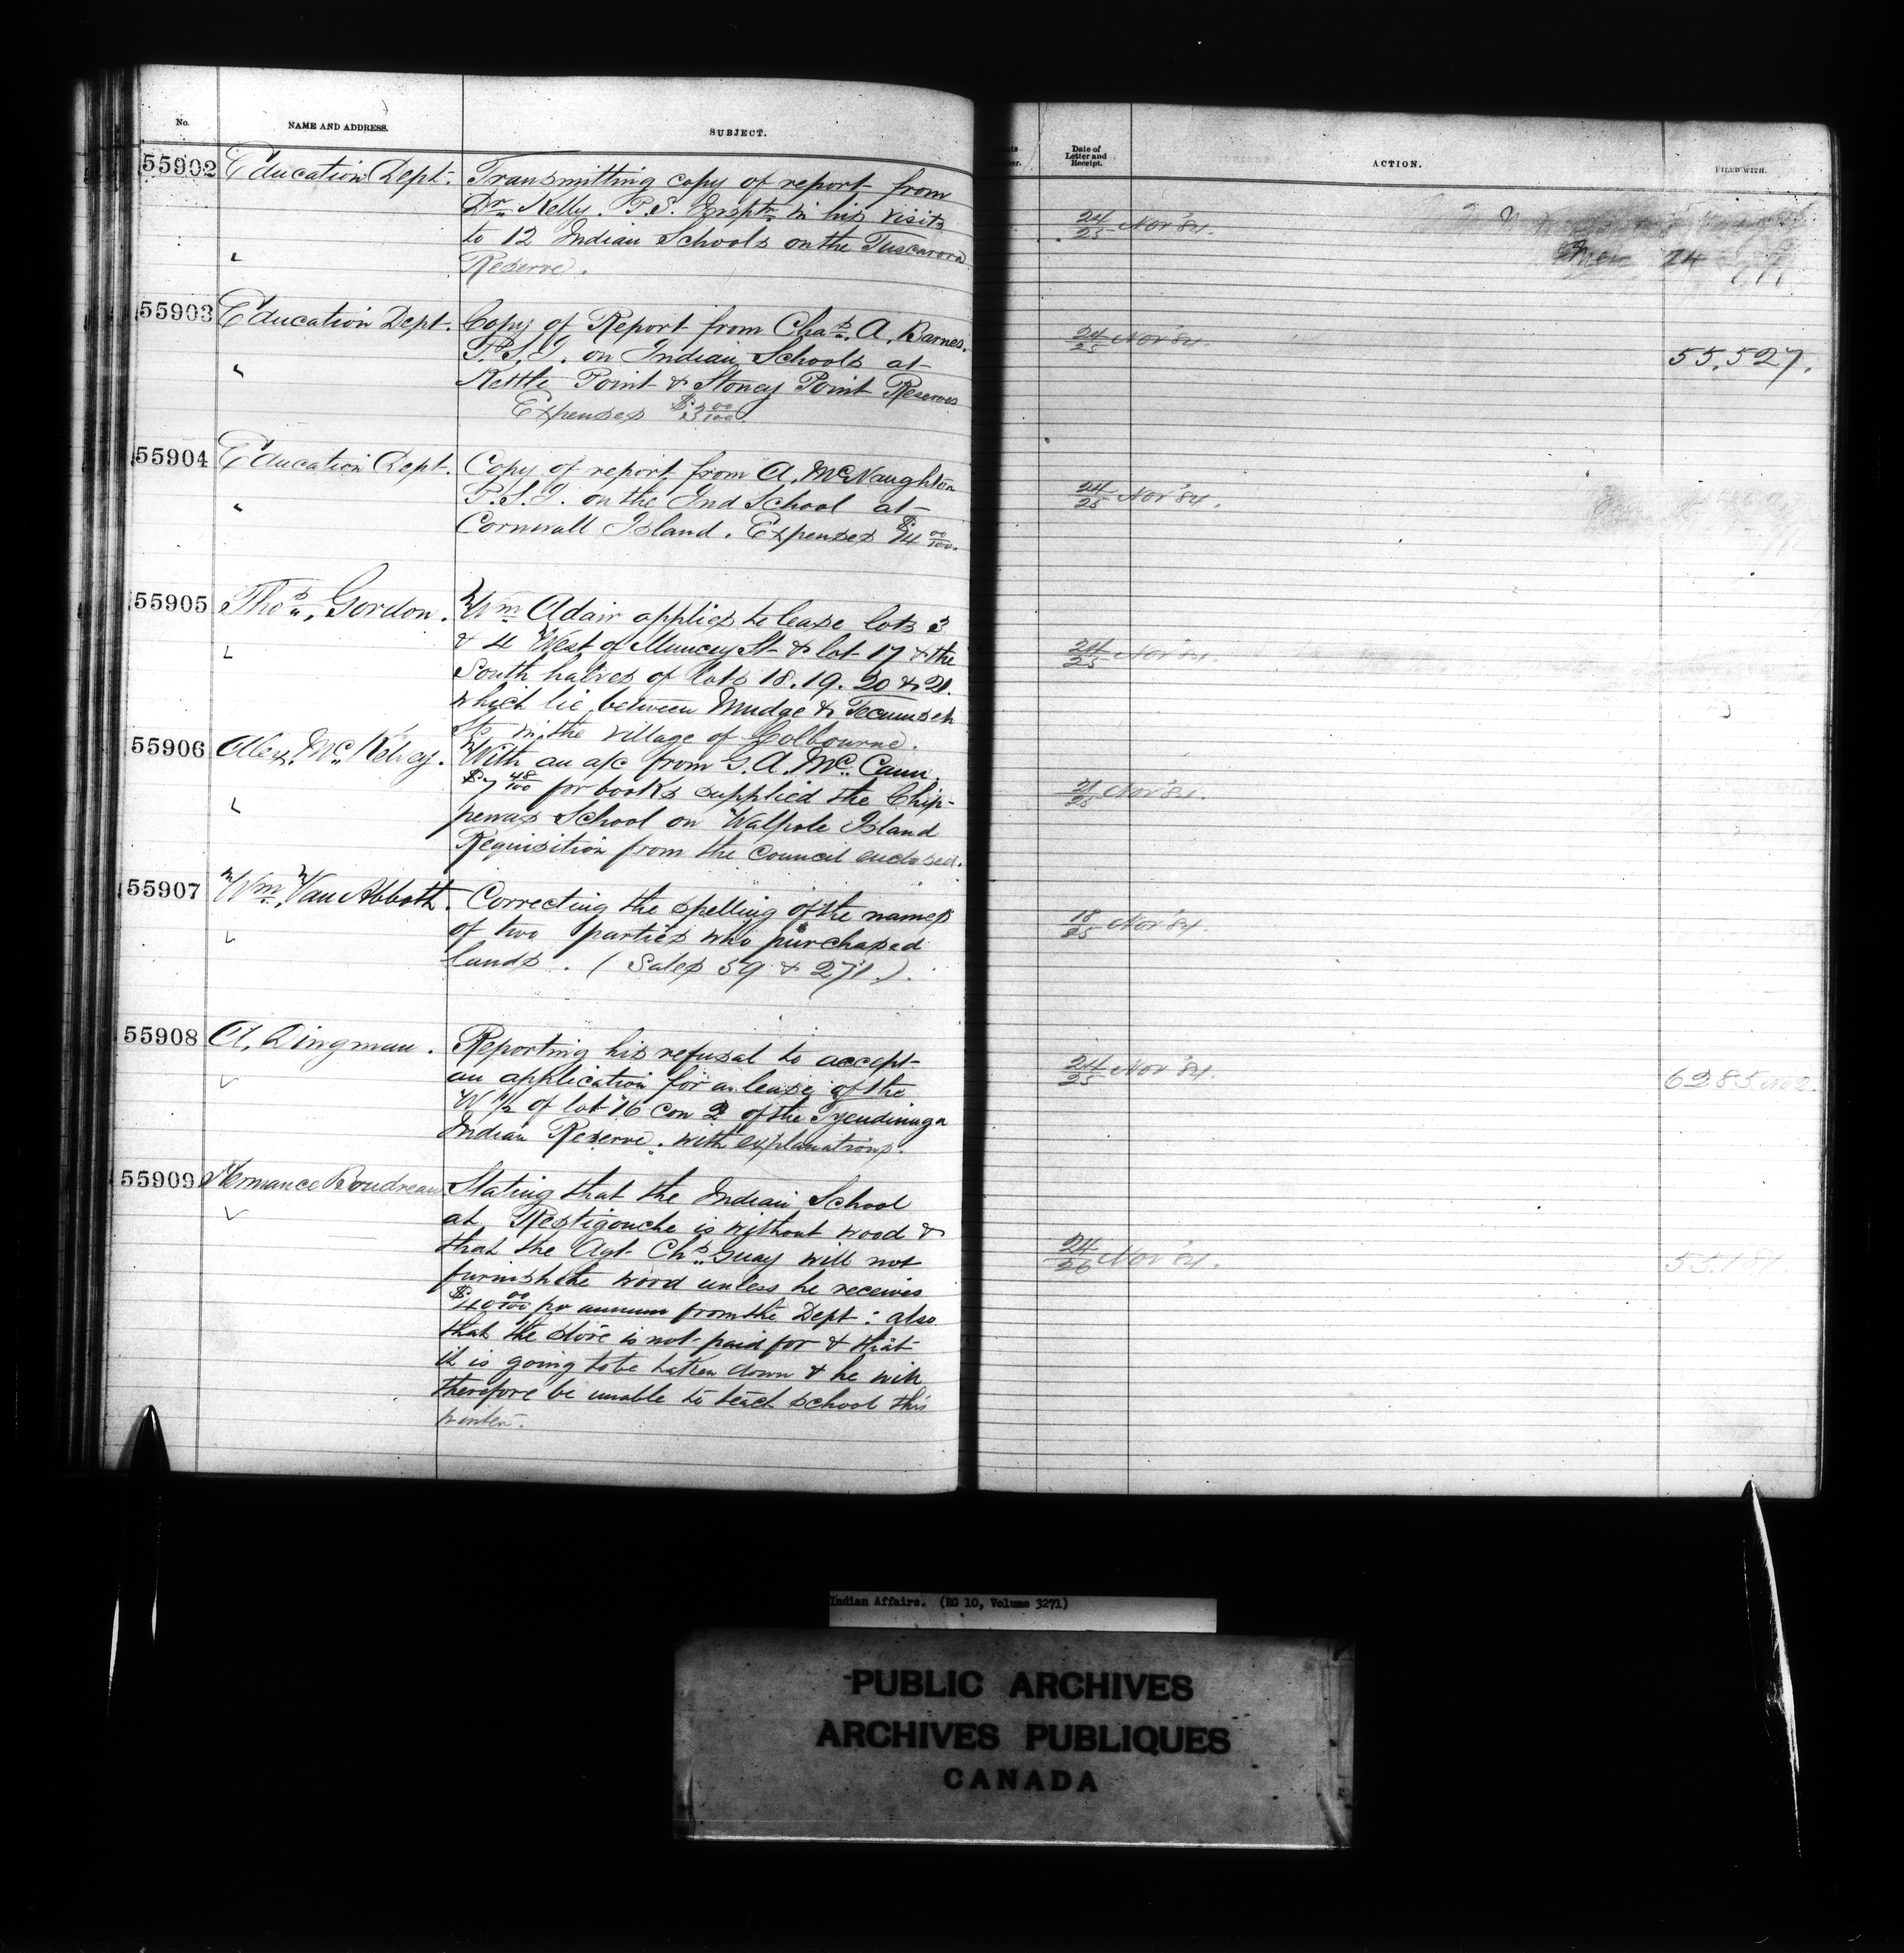 No.
NAME AND ADDRESS.
SUBJECT.
55902
Education Dept.
Transmitting copy of report from
Dr. Kelly. P.S. Insptr. in his visits
to 12 Indian Schools on the Tuscarora
Reserve.
55903
Education Dept.
Copy of Report from Chas. A. Barnes.
P.S.I. on Indian Schools at
Kettle Point & Stoney Point Reserves
Expenses
55904
Education Dept.
Copy of report from A. McNaughton
P.S.I. on the Ind School at
Cornwall Island. Expenses $4 00/100.
55905
Thos. Gordon.
Wm Adair applies to lease lots 3
& 4 West of Muncey St & lot 17 & the
South halves of lots 18. 19. 20 & 21.
which lie between Mudge & Tecumseh
Sts in the village of Colbourne.
55906
Alex. McKelvey.
With an a/c from G. A. McCann
$7 48/100 for books supplied the Chip-
pewas School on Walpole Island
Requisition from the Council enclosed.
55907
Wm. Van Abbott.
Correcting the spelling of the names
of two parties who purchased
lands. (Sales 59 & 271.).
55908
A. Dingman.
Reporting his refusal to accept
an application for a lease of the
W 1/2 of lot 16 con 2 of the Tyendinaga
Indian Reserve. with explanations.
55909
Hermance Boudreau
Stating that the Indian School
at Restigouche is without wood &
that the Agt. Chs. Guay will not
furnish the wood unless he receives
$40 00/100 pr annum from the Dept: also
that the stove is not paid for & that
it is going to be taken down & he will
therefore be unable to teach school this
winter.
Date of
Letter and
Receipt.
ACTION.
FILED WITH.
24/25 Nov '84.
24
24/25 Nov '84.
55.527.
24/25 Nov '84.
24/25 Nov '84.
21/25 Nov '84.
18/25 Nov '84.
24/25 Nov '84.
6285. No 2.
24/26 Nov '84.
55.181.
Indian Affairs. (RG 10, Volume 3271)
PUBLIC ARCHIVES
ARCHIVES PUBLIQUES
CANADA